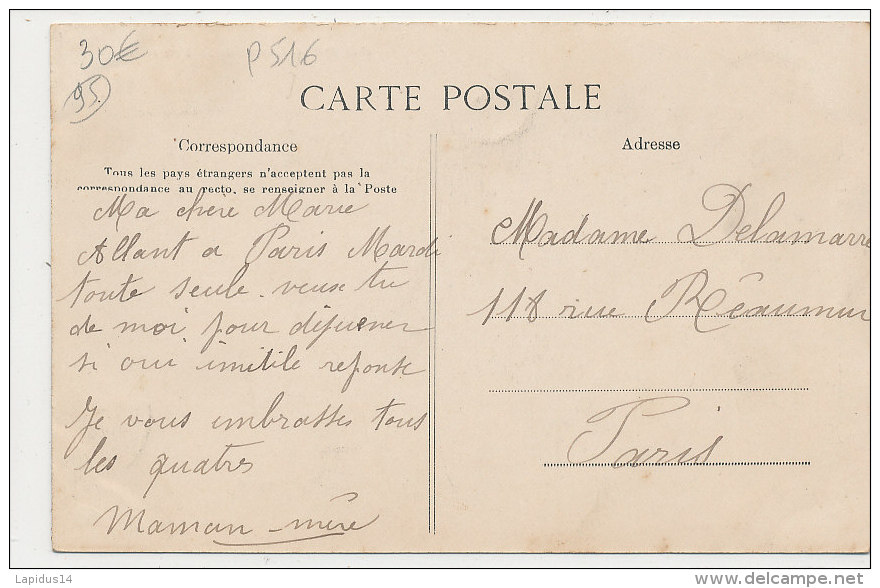 30€
P 516
95.
CARTE POSTALE
Correspondance
Adresse
Tous les pays étrangers n'acceptent pas la
correspondance au recto, se renseigner à la Poste
Ma chère Marie
Allant a Paris Mardi
toute seule. veux tu
de moi pour dejuener
si oui inutile reponse
Je vous embrasses tous
les quatres
Maman-mère
Madame Delamarre
118 rue Réaumur
Paris
Lapidus14
delcampe.net